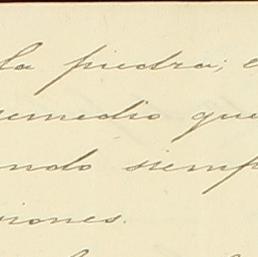 la piedra;
remedio que
ando siemp
iones.